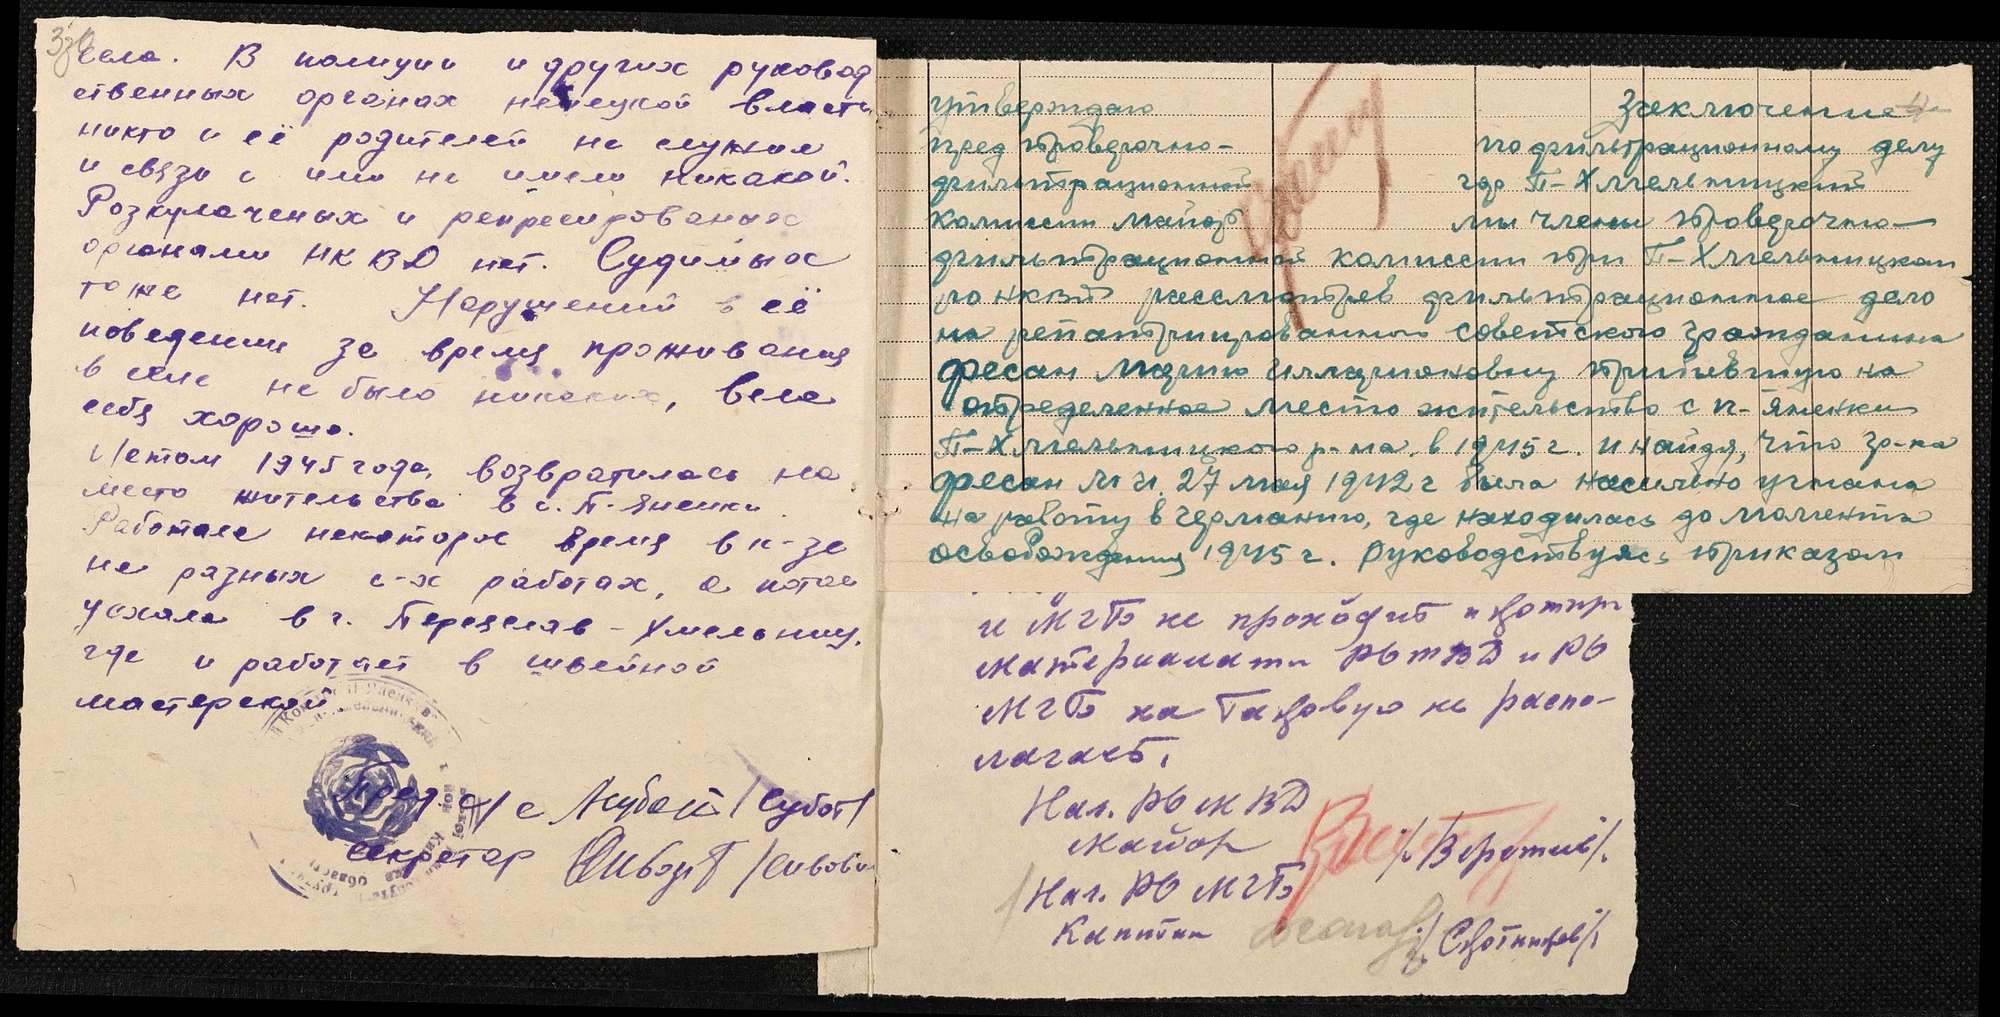 села. В полиции и других руковод
ственных органах немецкой власти
никто и её родителей не служил
и связи с ими не имели никакой.
Розкулаченых и репресированых
органами НКВД нет. Судимых
тоже нет. Нарушений в её
поведении за время проживания
в селе не было никаких, вела
себя хорошо.
Летом 1945 года, возвратилась на
место жительства в с. П-Яненки.
Работала некоторое время в к-зе
на разных с-х работах, а потом
уехала в г. Переяслав-Хмельниц.
где и работает в швейной
мастерской
Пред с/с /Субот/
Секретар
Утверждаю
пред проверочно-
фильтрационной
комиссии майор
Заключение
по фильтрационному делу
гор П-Хмельницкий
мы члены проверочно-
фильтрационной комиссии при П-Хмельницком
ро НКВД рассмотрев фильтрационное дело
на репатриированного советского гражданина
Фесан Марию Илларионовну прибывшую на
определенное место жительство с п-Яненки
П-Хмельницкого р-на. в 1945 г. и найдя, что гр-ка
Фесан М И. 27 мая 1942 г была насильно угнана
на работу в германию, где находилась до момента
освобождения 1945 г. Руководствуясь приказом
и МГБ не проходит и
материалами РО МВД и РО
МГБ на таковую не распо-
лагает.
Нач. РО МВД
Майор
Нач. РО МГБ
Капитан